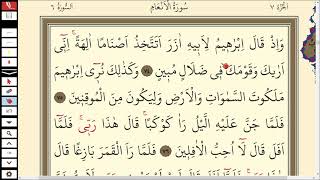 الجزء ٧ سورة الأنعام السورة ٦
وَاِذْ قَالَ اِبْرٰهِيمُ لِاَبِيهِ اٰزَرَ اَتَتَّخِذُ اَصْنَامًا اٰلِهَةً اِنِّٓى
اَرٰيكَ وَقَوْمَكَ فِى ضَلَالٍ مُبِينٍ ٧٤ وَكَذٰلِكَ نُرِٓى اِبْرٰهِيمَ
مَلَكُوتَ السَّمٰوَاتِ وَالْاَرْضِ وَلِيَكُونَ مِنَ الْمُوقِنِينَ ٧٥
فَلَمَّا جَنَّ عَلَيْهِ الَّيْلُ رَاٰ كَوْكَبًا قَالَ هٰذَا رَبِّى فَلَمَّٓا
اَفَلَ قَالَ لَٓا اُحِبُّ الْاٰفِلِينَ ٧٦ فَلَمَّا رَاَ الْقَمَرَ بَازِغًا قَالَ